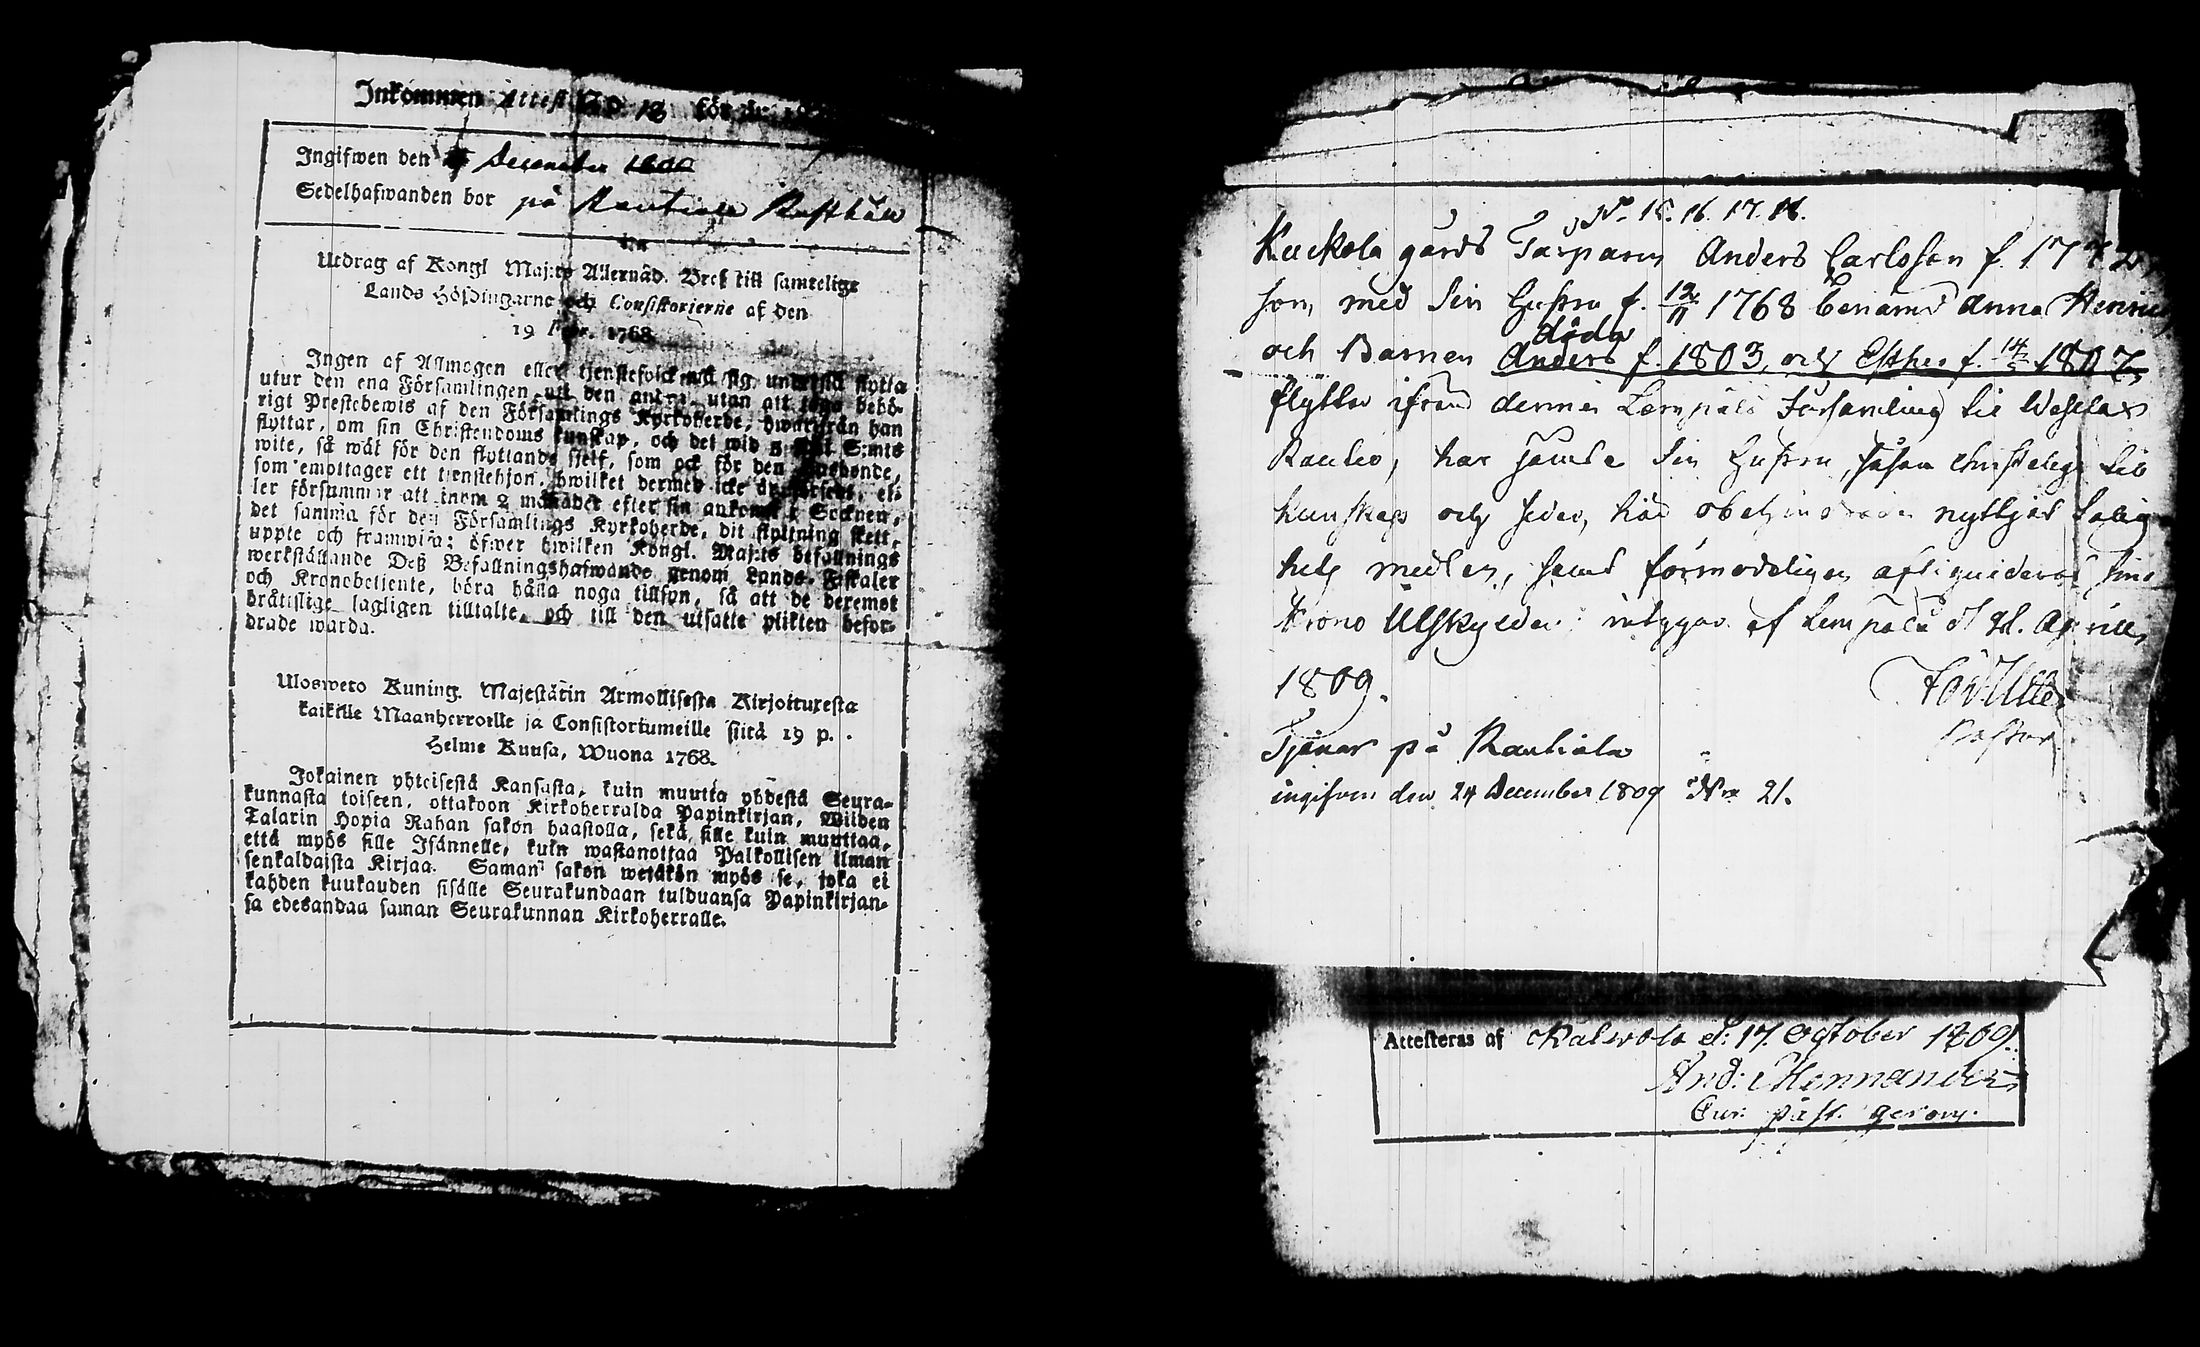 Inkommen Attest No 18 för år
Ingifwen den December
Sedelhafwanden bor på Rautiala Rusthåll
Utdrag af Kongl Maj:ts Allernåd. Bref till samtelige
Lands Höfdingarne och Consistorierne af den
19 Febr. 1768.
Ingen af Allmogen eller tjenstefolck må sig understå flytta
utur den ena Församlingen till den andra utan att taga behö-
rigt Prestebewis af den Församlings Kyrkoherde, hwarifrån han
flyttar, om sin Christendoms kunskap, och det wid S:mts
wite, så wäl för den flyttande sjelf, som ock för den Husbonde,
som emottager ett tienstehjon, hwilket dermed icke är försedt, el-
ler försummar att inom 2 månader efter sin ankomst i Socknen,
det samma för den Församlings Kyrkoherde, dit flyttning skett,
uppte och framwisa; öfwer hwilken Kongl. Maj:ts befallnings
werkställande Deß Befallningshafwande genom Lands-Fiskaler
och Kronobetjente, böra hålla noga tillsyn, så att de deremot
bråttslige lagligen tilltalte, och till den utsatte plikten befor-
drade warda.
Ulosweto Kuning. Majestätin Armollisesta Kirjoituxesta
kaikille Maanherroille ja Consistoriumeille siitä 19 p.
Helme Kuusa, Wuona 1768.
Jokainen yhteisestä Kansasta, kuin muutta yhdestä Seura-
kunnasta toiseen, ottakoon Kirkoherralda Papinkirjan, Wiiden
Talarin Hopia Rahan sakon haastolla, sekä sille kuin muuttaa,
että myös sille Isännelle, kuin wastanottaa Palkollisen ilman
senkaldaista Kirjaa. Saman sakon wetäkön myös se, joka ei
kahden kuukauden sisälle Seurakundaan tulduansa Papinkirjan-
sa edesandaa saman Seurakunnan Kirkoherralle.
No. 15. 16. 17. 18.
Kuckola gårds Torparen Anders Carlsson f. 1772,
son, med Sin Hustru f. 12/11 1768 benämd Anna Henrics
döda
och Barnen Anders f. 1803, och Esther f. 14/5 1807,
flyttar ifrån denna Lempälä Församling til Wesilax
Rautio, har jemte Sin Hustru, såsom christelige til
kunskap och seder, här obehindrade nyttjat Salig
hets medlen, samt förmodeligen afliquiderat sina
Krono Utskylder: intygar af Lempälä d. 21. Aprill,
1809.
Pastor
Tjenar på Rautiala
ingifven den 24 December 1809 No 21.
Attesteras af Kalwola d. 17. October 1809.
And: Mennander
Cur. past. gerens.